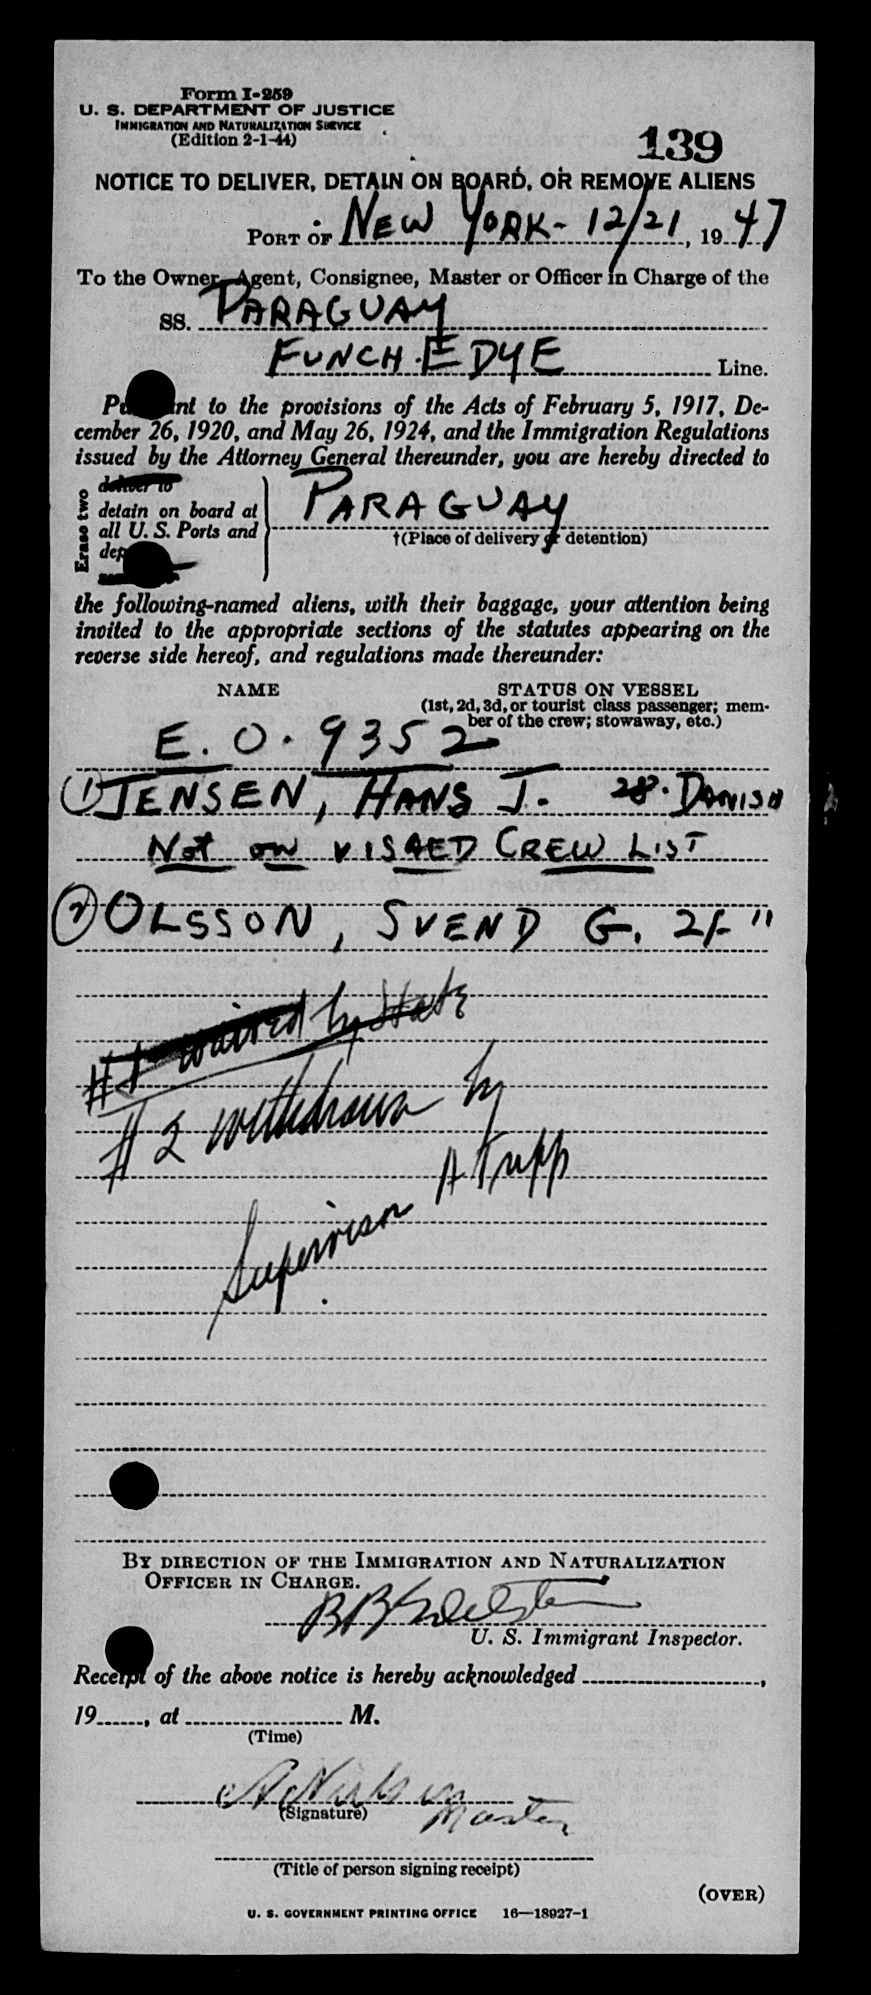 Form I-259
U. S. DEPARTMENT OF JUSTICE
IMMIGRATION AND NATURALIZATION SERVICE
(Edition 2-1-44)
139
NOTICE TO DELIVER, DETAIN ON BOARD, OR REMOVE ALIENS
PORT OF NEW YORK - 12/21, 1947
To the Owner, Agent, Consignee, Master or Officer in Charge of the
SS. PARAGUAY
FUNCH. EDYE Line.
Pu nt to the provisions of the Acts of February 5, 1917, De-
cember 26, 1920, and May 26, 1924, and the Immigration Regulations
issued by the Attorney General thereunder, you are hereby directed to
Erase two
deliver to
detain on board at
all U. S. Ports and
dep
PARAGUAY
†(Place of delivery or detention)
the following-named aliens, with their baggage, your attention being
invited to the appropriate sections of the statutes appearing on the
reverse side hereof, and regulations made thereunder:
NAME STATUS ON VESSEL
(1st, 2d, 3d, or tourist class passenger; mem-
ber of the crew; stowaway, etc.)
E. O. 9352
① JENSEN, HANS J. 28. DANISH
Not on VISAED CREW LIST
② OLSSON, SVEND G. 21 - "
#1 waived by State
#2 withdrawn by
Supervisor A Krupp
BY DIRECTION OF THE IMMIGRATION AND NATURALIZATION
OFFICER IN CHARGE.
U. S. Immigrant Inspector.
Receipt of the above notice is hereby acknowledged ,
19 , at M.
(Time)
A Nielsen
(Signature) Master
(Title of person signing receipt)
(OVER)
U. S. GOVERNMENT PRINTING OFFICE 16—18927-1